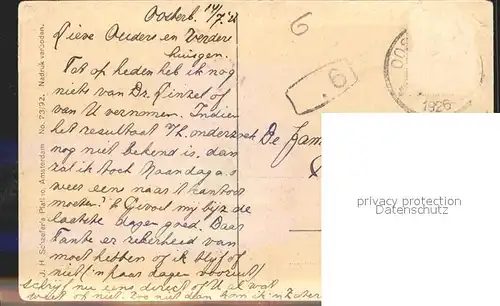 Oosterb. 14/7.'26
Lieve Ouders en verdere
huisgen.
Tot op heden heb ik nog
niets van Dr. Pinzel of
van U vernomen. Indien
het resultaat v/h. onderzoek
nog niet bekend is, dan
zal ik toch Maandag a.s
weer een naar 't kantoor
moeten? 'k Gevoel mij bijz de
laatste dagen goed. Daar
Tante er zekerheid van
moet hebben of ik blijf of
niet ('n paar dagen vooruit)
schrijf nu eens direct of U al wat
weet of niet. Zoo niet dan kom ik 'n Zater
J. H. Schaefer's Plat.-io, Amsterdam No. 23/92. Nadruk verboden.
6
6.
OOS
1926
De Fam
privacy protection
Datenschutz